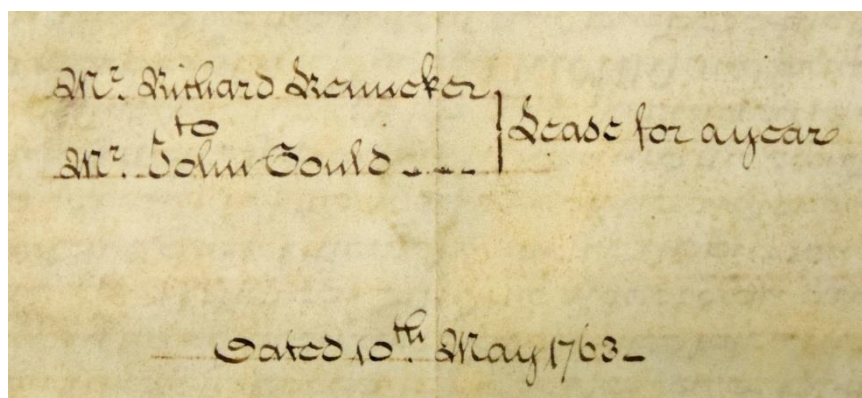 Mr. Richard Renneker
to
Mr. John Gould
Lease for a year
Dated 10th. May 1763